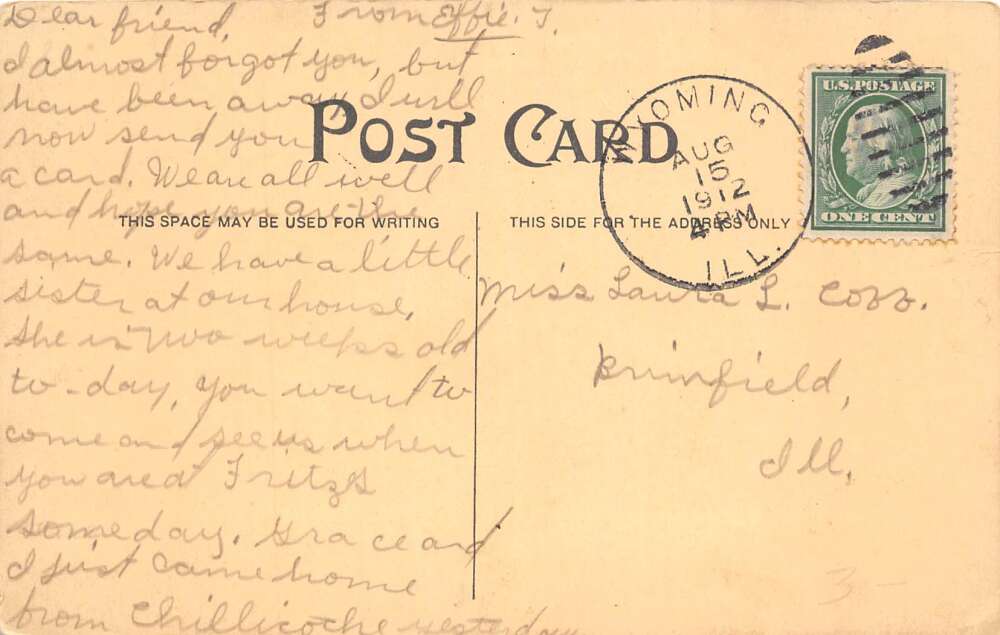 Dear friend, From Effie. T.
I almost forgot you, but
have been away I will
now send you
a card. We are all well
and hope you are the
same. We have a little
sister at our house,
she is two weeks old
to-day, you want to
come and see us when
you are at Fritz's
someday. Grace and
I just came home
from Chillicoche yesterday
POST CARD
THIS SPACE MAY BE USED FOR WRITING
THIS SIDE FOR THE ADDRESS ONLY
WYOMING
AUG
15
1912
4 PM
ILL.
U.S. POSTAGE
ONE CENT
Miss Laura L. Cobb.
Brimfield,
Ill.
3-